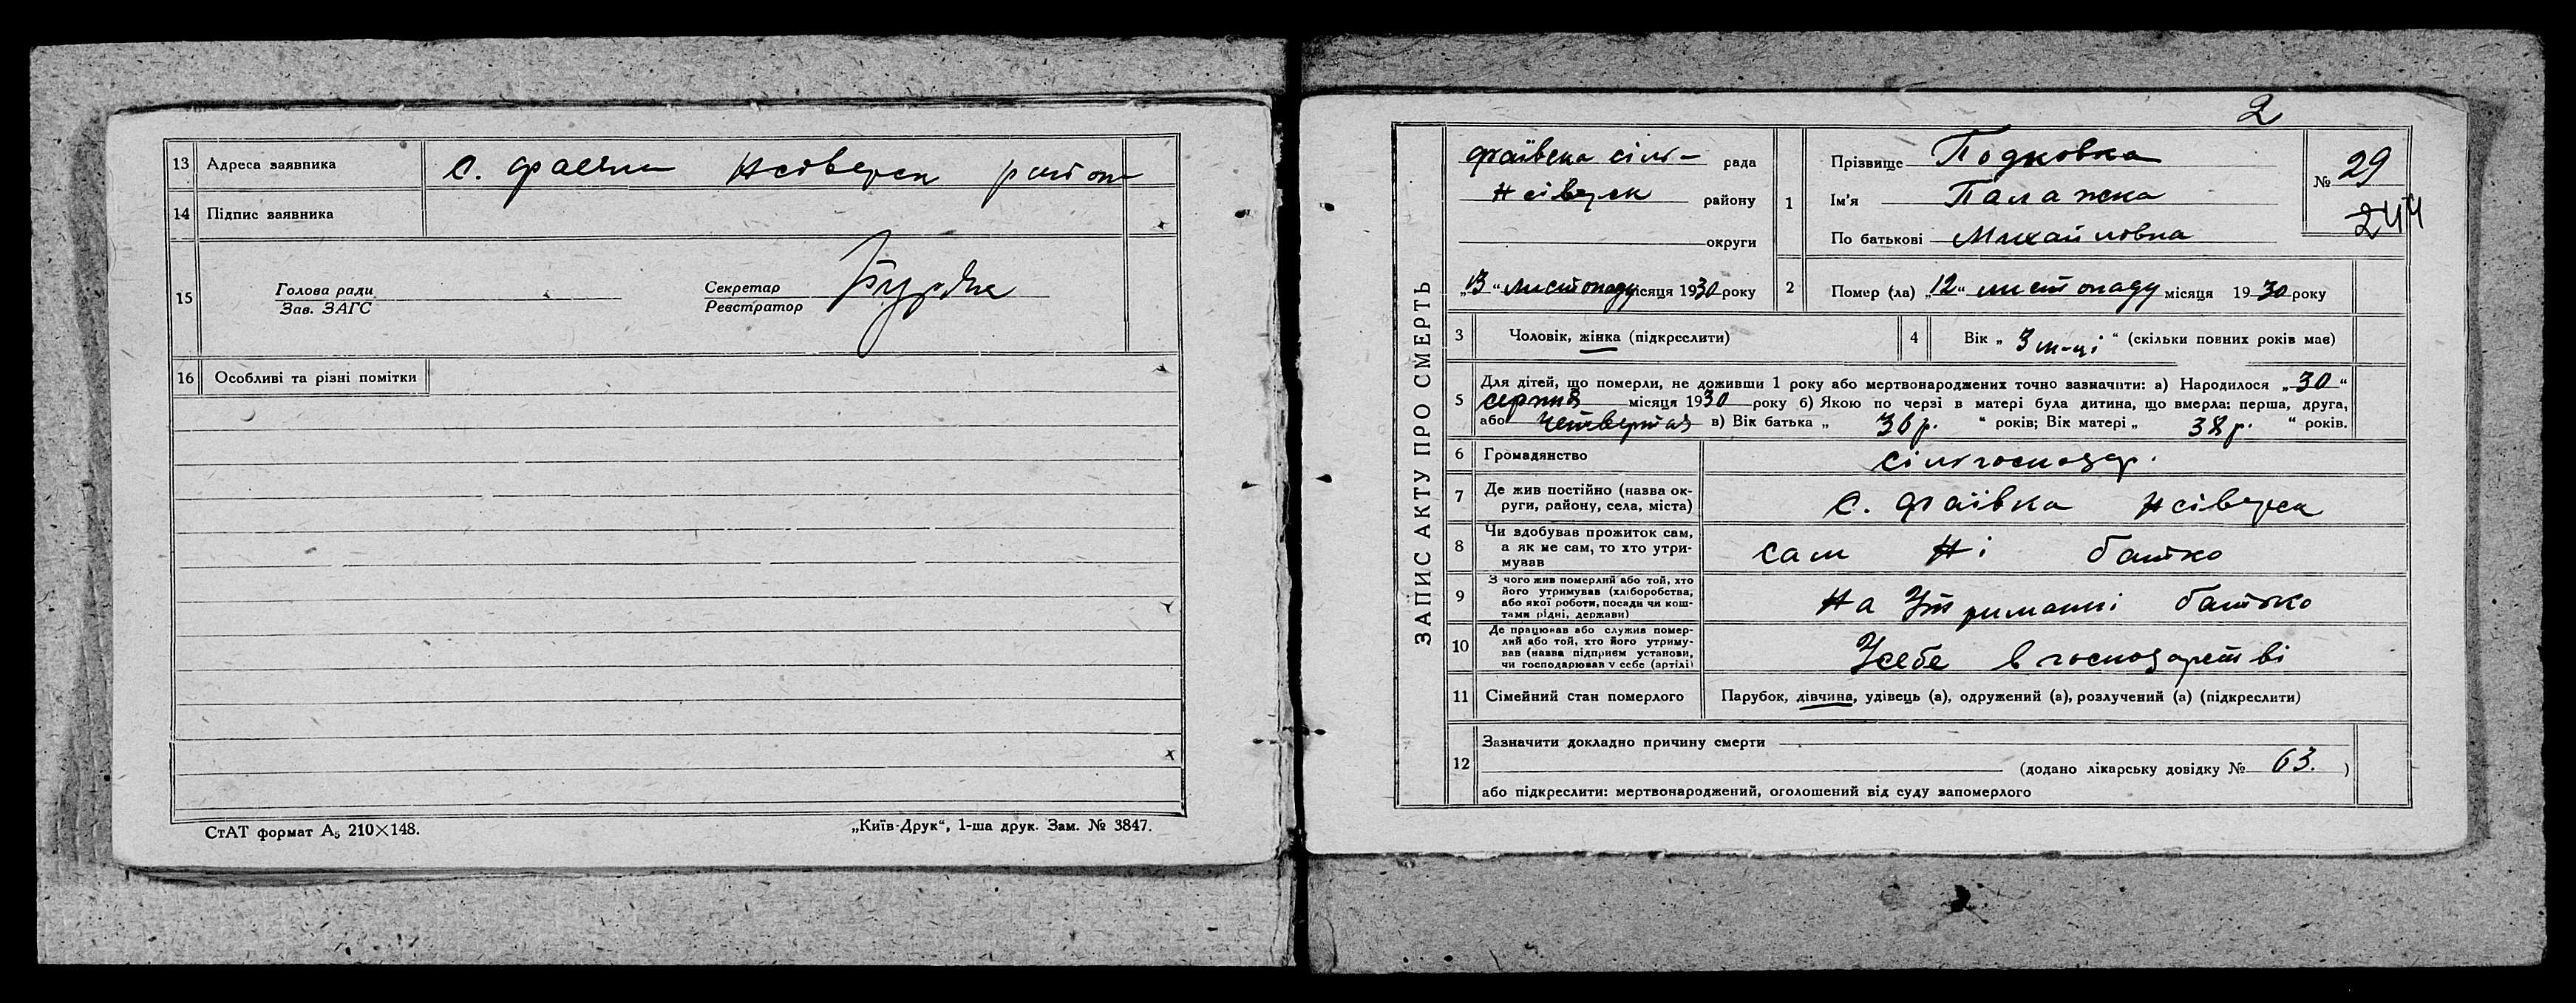 13 Адреса заявника с. Фаєвка Нсіверск район
14 Підпис заявника
15 Голова ради
Зав. ЗАГС
Секретар
Реєстратор
16 Особливі та різні помітки
СтАТ формат А₅ 210×148.
„Київ-Друк“, 1-ша друк. Зам. № 3847.
2
ЗАПИС АКТУ ПРО СМЕРТЬ
Фаївска сіль- рада
Нсіверск району
округи
„13“ листопаду місяця 1930 року
1 Прізвище Подковка
Ім'я Палажка
По батькові Михайловна
№ 29
244
2 Помер (ла) „12“ листопаду місяця 1930 року
3 Чоловік, жінка (підкреслити)
4 Вік „ 3 м-ці “ (скільки повних років має)
5 Для дітей, що померли, не доживши 1 року або мертвонароджених точно зазначити: а) Народилося „30“
серпня місяця 1930 року б) Якою по черзі в матері була дитина, що вмерла: перша, друга,
або четвертая в) Вік батька „ 36 р. “ років; Вік матері „ 38 р. “ років.
6 Громадянство сільгосподар.
7 Де жив постійно (назва ок-
руги, району, села, міста) с. Фаївка Нсіверск
8 Чи здобував прожиток сам,
а як не сам, то хто утри-
мував сам Ні батко
9 З чого жив померлий або той, хто
його утримував (хліборобства,
або якої роботи, посади чи кош-
тами рідні, держави) На Утриманні батько
10 Де працював або служив помер-
лий або той, хто його утриму-
вав (назва підприєм установи,
чи господарював у себе (артілі) Усебе в господарстві
11 Сімейний стан померлого Парубок, дівчина, удівець (а), одружений (а), розлучений (а) (підкреслити)
12 Зазначити докладно причину смерти
(додано лікарську довідку № 63. )
або підкреслити: мертвонароджений, оголошений від суду запомерлого